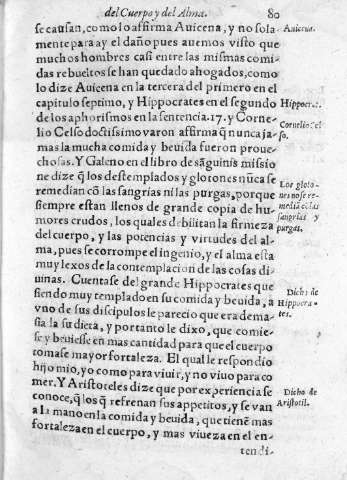 del Cuerpo y del Alma. 80
se causan, como lo affirma Auicena, y no sola
mente para ay el daño pues auemos visto que
muchos hombres casi entre las mismas comi-
das rebueltos se han quedado ahogados, como
lo dize Auicena en la tercera del primero en el
capitulo septimo, y Hippocrates en el segundo
de los aphorismos en la sentencia. 17. y Corne-
lio Celso doctissimo varon affirma q̃ nunca ja-
mas la mucha comida y beuida fueron proue-
chosas. Y Galeno en el libro de sãguinis missio
ne dize q̃ los destemplados y glotones nũca se
remedian cõ las sangrias ni las purgas, porque
siempre estan llenos de grande copia de hu-
mores crudos, los quales debilitan la firmeza
del cuerpo, y las potencias y virtudes del al-
ma, pues se corrompe el ingenio, y el alma esta
muy lexos de la contemplacion de las cosas di-
uinas. Cuentase del grande Hippocrates que
siendo muy templado en su comida y beuida, a
vno de sus discipulos le parecio que era dema-
sia la su dieta, y por tanto le dixo, que comie-
se y beuiesse en mas cantidad para que el cuerpo
tomase mayor fortaleza. El qual le respondio
hijo mio, yo como para viuir, y no viuo para co
mer. Y Aristoteles dize que por experiencia se
conoce, q̃ los q̃ refrenan sus appetitos, y se van
a la mano en la comida y beuida, que tienẽ mas
fortaleza en el cuerpo, y mas viueza en el en-
tendi-
Auicena.
Hippocrat.
Cornelio Cel
so.
Los gloto-
nes no se re-
mediã cõ las
sangrias y
purgas.
Dicho de
Hippocra-
tes.
Dicho de
Aristotil.